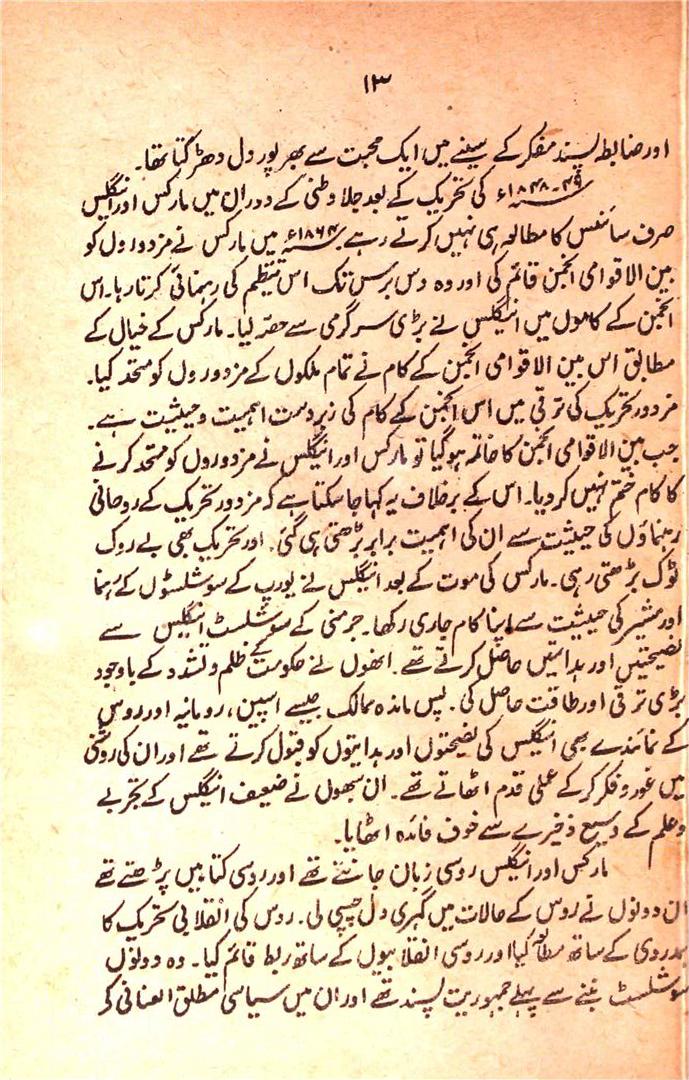 ۱۳
اور ضابطہ پسند مفکر کے سینے میں ایک محبت سے بھرپور دل دھڑکتا تھا۔
۴۹-۱۸۴۸ء کی تحریک کے بعد جلا وطنی کے دوران میں مارکس اور انگلیس
صرف سائنس کا مطالعہ ہی نہیں کرتے رہے۔ ۱۸۶۴ء میں مارکس نے مزدوروں کو
بین الاقوامی انجمن قائم کی اور وہ دس برس تک اس تنظیم کی رہنمائی کرتا رہا۔ اس
انجمن کے کاموں میں انیگلس نے بڑی سرگرمی سے حصہ لیا۔ مارکس کے خیال کے
مطابق اس بین الاقوامی انجمن کے کام نے تمام ملکوں کے مزدوروں کو متحد کیا۔
مزدور تحریک کی ترقی میں اس انجمن کے کام کی زبردست اہمیت و حیثیت ہے۔
جب بین الاقوامی انجمن کا خاتمہ ہو گیا تو مارکس اور انیگلس نے مزدوروں کو متحد کرنے
کا کام ختم نہیں کر دیا۔ اس کے برخلاف یہ کہا جا سکتا ہے کہ مزدور تحریک کے روحانی
رہنماؤں کی حیثیت سے ان کی اہمیت برابر بڑھتی ہی گئی۔ اور تحریک بھی بے روک
ٹوک بڑھتی رہی۔ مارکس کی موت کے بعد انیگلس نے یورپ کے سوشلسٹوں کے رہنما
اور مشیر کی حیثیت سے اپنا کام جاری رکھا۔ جرمنی کے سوشلسٹ انیگلس سے
نصیحتیں اور ہدایتیں حاصل کرتے تھے۔ انھوں نے حکومت کے ظلم و تشدد کے باوجود
بڑی ترقی اور طاقت حاصل کی۔ پس ماندہ ممالک جیسے اسپین، رومانیہ اور روس
کے نمائندے بھی انیگلس کی نصیحتوں اور ہدایتوں کو قبول کرتے تھے اور ان کی روشنی
میں غور و فکر کر کے عملی قدم اٹھاتے تھے۔ ان سبھوں نے ضعیف انیگلس کے تجربے
و علم کے وسیع ذخیرے سے خوف فائدہ اٹھایا۔
مارکس اور انیگلس روسی زبان جانتے تھے اور روسی کتابیں پڑھتے تھے
ان دونوں نے روس کے حالات میں گہری دل چسپی لی۔ روس کی انقلابی تحریک کا
ہمدردی کے ساتھ مطالعہ کیا اور روسی انقلابیوں کے ساتھ ربط قائم کیا۔ وہ دونوں
سوشلسٹ بننے سے پہلے جمہوریت پسند تھے اور ان میں سیاسی مطلق العنانی کر